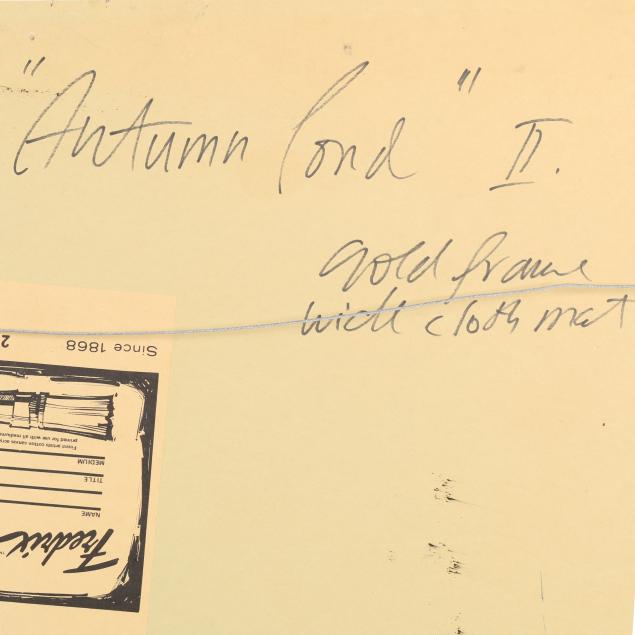 "Autumn Pond" II.
gold frame
with cloth mat
Since 1868
Finest artists cotton canvas
primed for use with all mediums
MEDIUM
TITLE
NAME
Fredrix